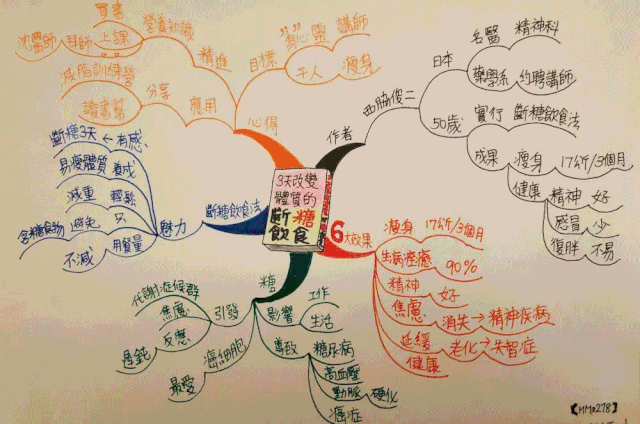 3天改變
體質的
斷糖
飲食
作者
西脇俊二
日本
名醫 精神科
藥學系 約聘講師
50歲
實行 斷糖飲食法
成果
瘦身 17公斤/3個月
健康
精神 好
感冒 少
復胖 不易
6大效果
瘦身 17公斤/3個月
生病痊癒 90%
精神 好
焦慮 消失→精神疾病
延緩 老化→失智症
健康
糖
影響
工作
生活
導致
糖尿病
高血壓
動脈 硬化
癌症
引發
代謝症候群
焦慮
反應 遲鈍
癌細胞 最愛
斷糖飲食法
魅力
斷糖3天 ← 有感
易瘦體質 養成
減重 輕鬆
含糖食物 避免 只
不減 用餐量
心得
目標
"身"心靈 講師
千人 瘦身
精進
營養知識
買書
上課 拜師 沈醫師
應用
分享
減脂訓練營
讀書幫
【MM0278】